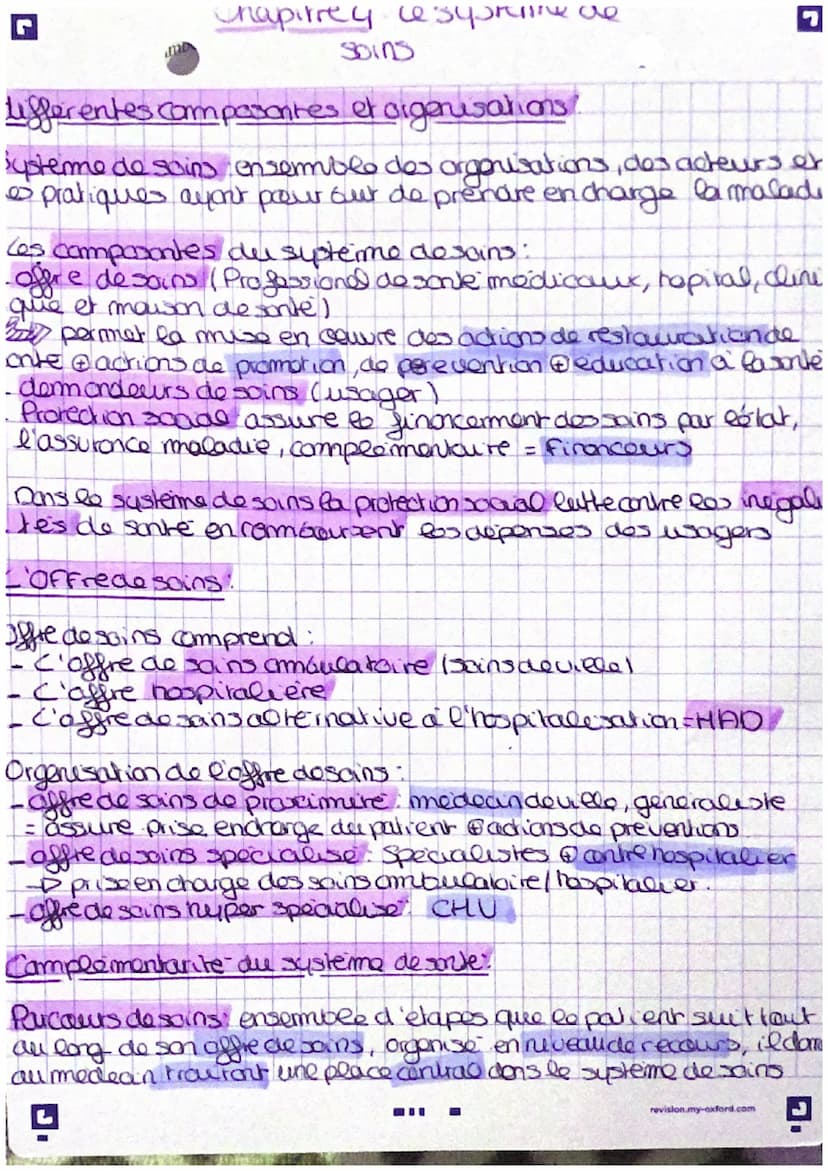 Chapitre 4. Le système de
soins
différentes composantes et organisations
Système de soins ensemble des organisations, des acteurs et
es pratiques ayant pour but de prendre en charge la maladi
Les composantes du système de soins :
- offre de soins (Professionnel de santé médicaux, hopital, clini
que et maison de santé)
permet la mise en œuvre des actions de restauration de
anté ⊕ actions de promotion, de prevention ⊕ éducation à la santé
- demandeurs de soins (usager)
- Protection sociale assure le financement des soins par l'état,
l'assurance maladie, complémentaire = financeurs
Dans le système de soins la protection social lutte contre les inégali
tés de santé en remboursent les dépenses des usagers
L'Offre de soins :
Offre de soins comprend :
- L'offre de soins ambulatoire (soins de ville)
- L'offre hospitalière
- L'offre de soins alternative à l'hospitalisation = HAD
Organisation de l'offre de soins :
- offre de soins de proximité : médecin de ville, généraliste
= assure prise en charge du patient ⊕ actions de prévention
- offre de soins spécialisé : Spécialistes ⊕ centre hospitalier
→ prise en charge des soins ambulatoire / hospitalier.
- offre de soins hyper spécialisé : CHU
Complémentarité du système de santé :
Parcours de soins : ensemble d'étapes que le patient suit tout
au long de son offre de soins, organisé en niveau de recours, il donn
au médecin traitant une place central dans le système de soins
revision.my-oxford.com